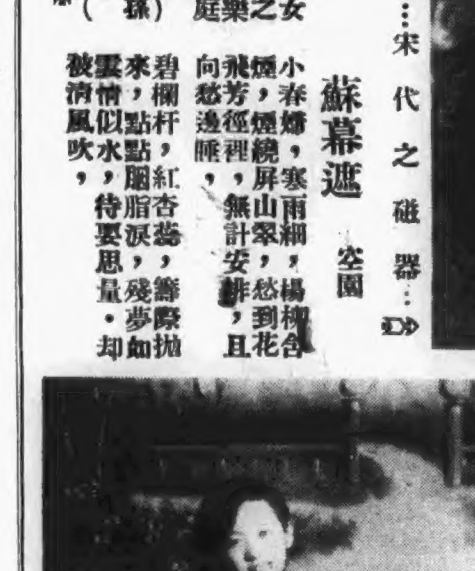 女之樂庭
孫)(
…宋代之磁器…
蘇幕遮 空園
小春嬌，寒雨細，楊柳含
煙，煙繞屏山翠，愁到花
飛芳徑裡，無計安排，且
向愁邊睡，
碧欄杆，紅杏蕊，簷際拋
來，點點胭脂淚，殘夢如
雲情似水，待要思量．却
被清風吹，